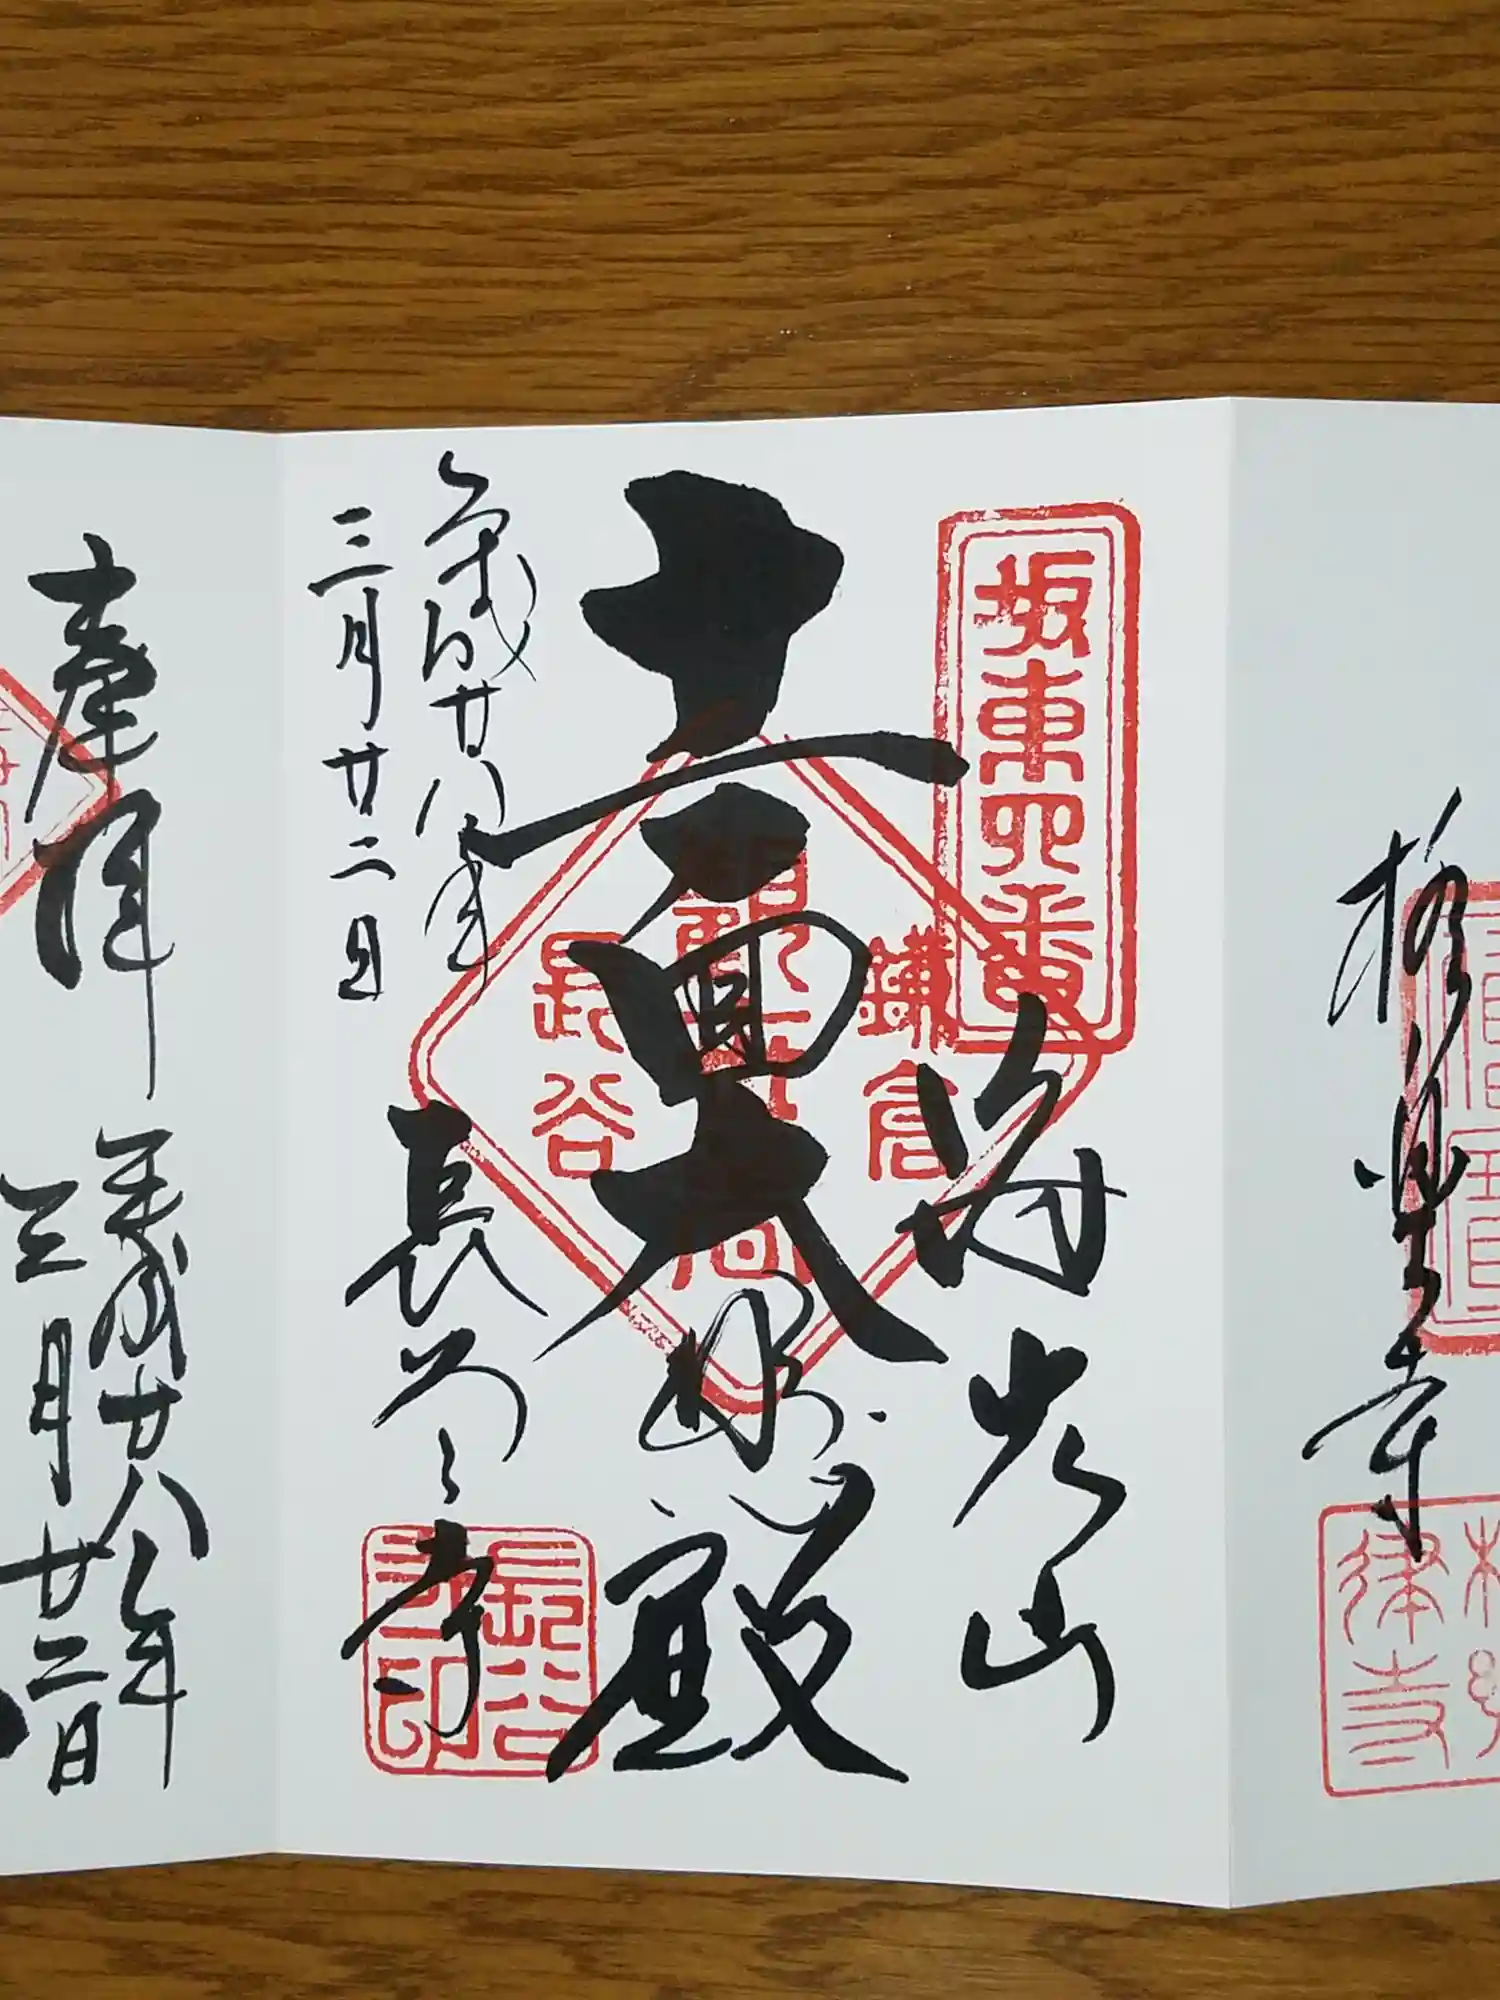 極楽寺
律寺
坂東四番
海光山
鎌倉
十一面大悲殿
長谷
長谷寺
長谷寺印
平成廿八年
三月廿二日
奉拝
平成廿八年
三月廿二日